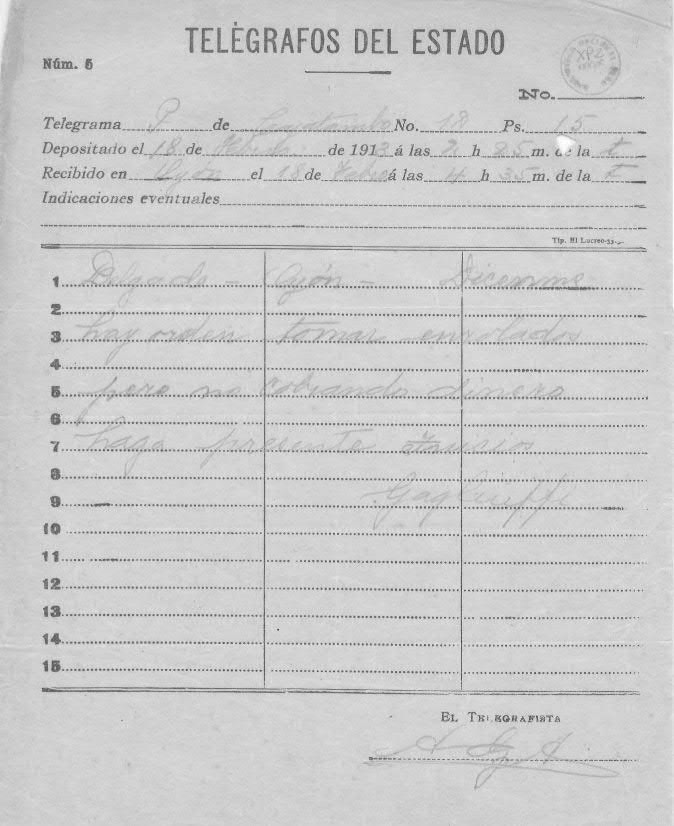 TELÉGRAFOS DEL ESTADO
Núm. 5
No.
Telegrama P. de Cajatambo No. 18 Ps. 15
Depositado el 18 de Febrero de 1913 á las 2 h 25 m. de la t
Recibido en Oyón el 18 de Febro á las 4 h 35 m. de la t
Indicaciones eventuales
Tip. El Lucero
1 Delgado - Oyón - Dicenme
2
3 hay orden tomar enrolados
4
5 pero no cobrando dinero
6
7 haga presente
8
9
10
11
12
13
14
15
EL TELEGRAFISTA